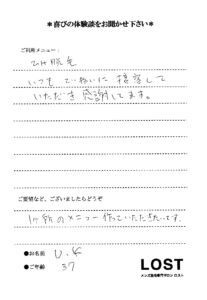 ＊喜びの体験談をお聞かせ下さい＊
ご利用メニュー：
ひげ脱毛
いつもていねいに接客して
いただき感謝してます。
ご要望など、ございましたらどうぞ
1ヶ所のメニュー作っていただきたいです。
●お名前 U.K
●ご年齢 37
LOST
メンズ脱毛専門サロン ロスト